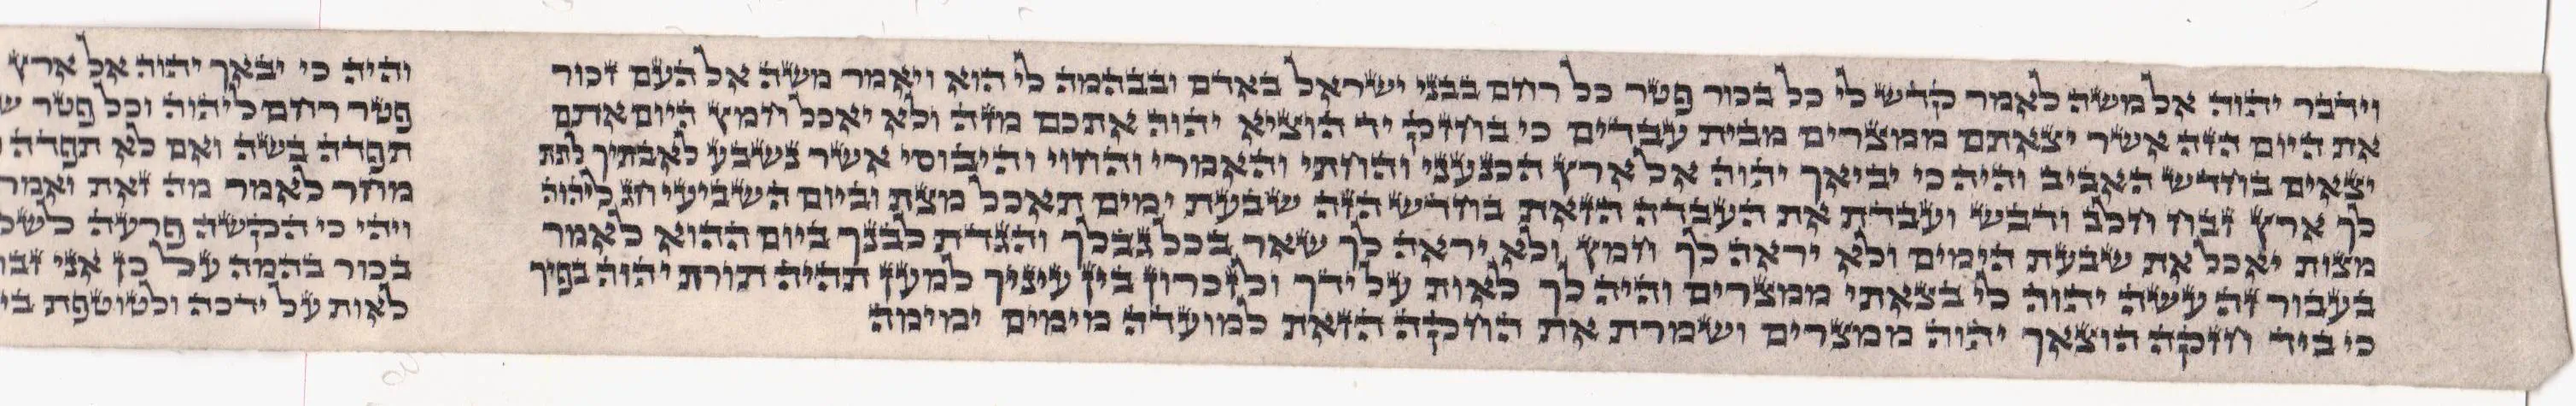 וידבר יהוה אל משה לאמר קדש לי כל בכור פטר כל רחם בבני ישראל באדם ובבהמה לי הוא ויאמר משה אל העם זכור
את היום הזה אשר יצאתם ממצרים מבית עבדים כי בחזק יד הוציא יהוה אתכם מזה ולא יאכל חמץ היום אתם
יצאים בחדש האביב והיה כי יביאך יהוה אל ארץ הכנעני והחתי והאמרי והחוי והיבוסי אשר נשבע לאבתיך לתת
לך ארץ זבת חלב ודבש ועבדת את העבדה הזאת בחדש הזה שבעת ימים תאכל מצת וביום השביעי חג ליהוה
מצות יאכל את שבעת הימים ולא יראה לך חמץ ולא יראה לך שאר בכל גבלך והגדת לבנך ביום ההוא לאמר
בעבור זה עשה יהוה לי בצאתי ממצרים והיה לך לאות על ידך ולזכרון בין עיניך למען תהיה תורת יהוה בפיך
כי ביד חזקה הוצאך יהוה ממצרים ושמרת את החקה הזאת למועדה מימים ימימה
והיה כי יבאך יהוה אל ארץ
פטר רחם ליהוה וכל פטר
תפדה בשה ואם לא תפדה
מחר לאמר מה זאת ואמר
ויהי כי הקשה פרעה
בכור בהמה על כן אני
לאות על ידכה ולטוטפת